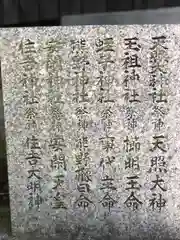 天照神社 祭神 天照大神
玉祖神社 祭神 御明玉命
蛭子神社 祭神 事代主命
熊野神社 祭神 熊野
安明神社 祭神 安明天皇
住吉神社 祭神 住吉大明神